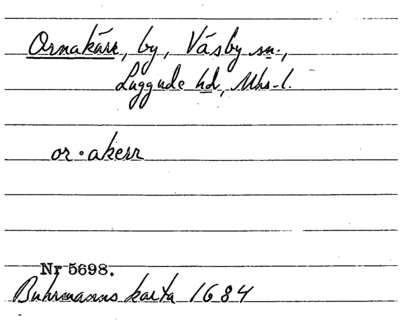 Ornakärr, by, Väsby sn.,
Luggude hd, Mhs-l.
or•akerr
Nr 5698.
Buhrmanns karta 1684